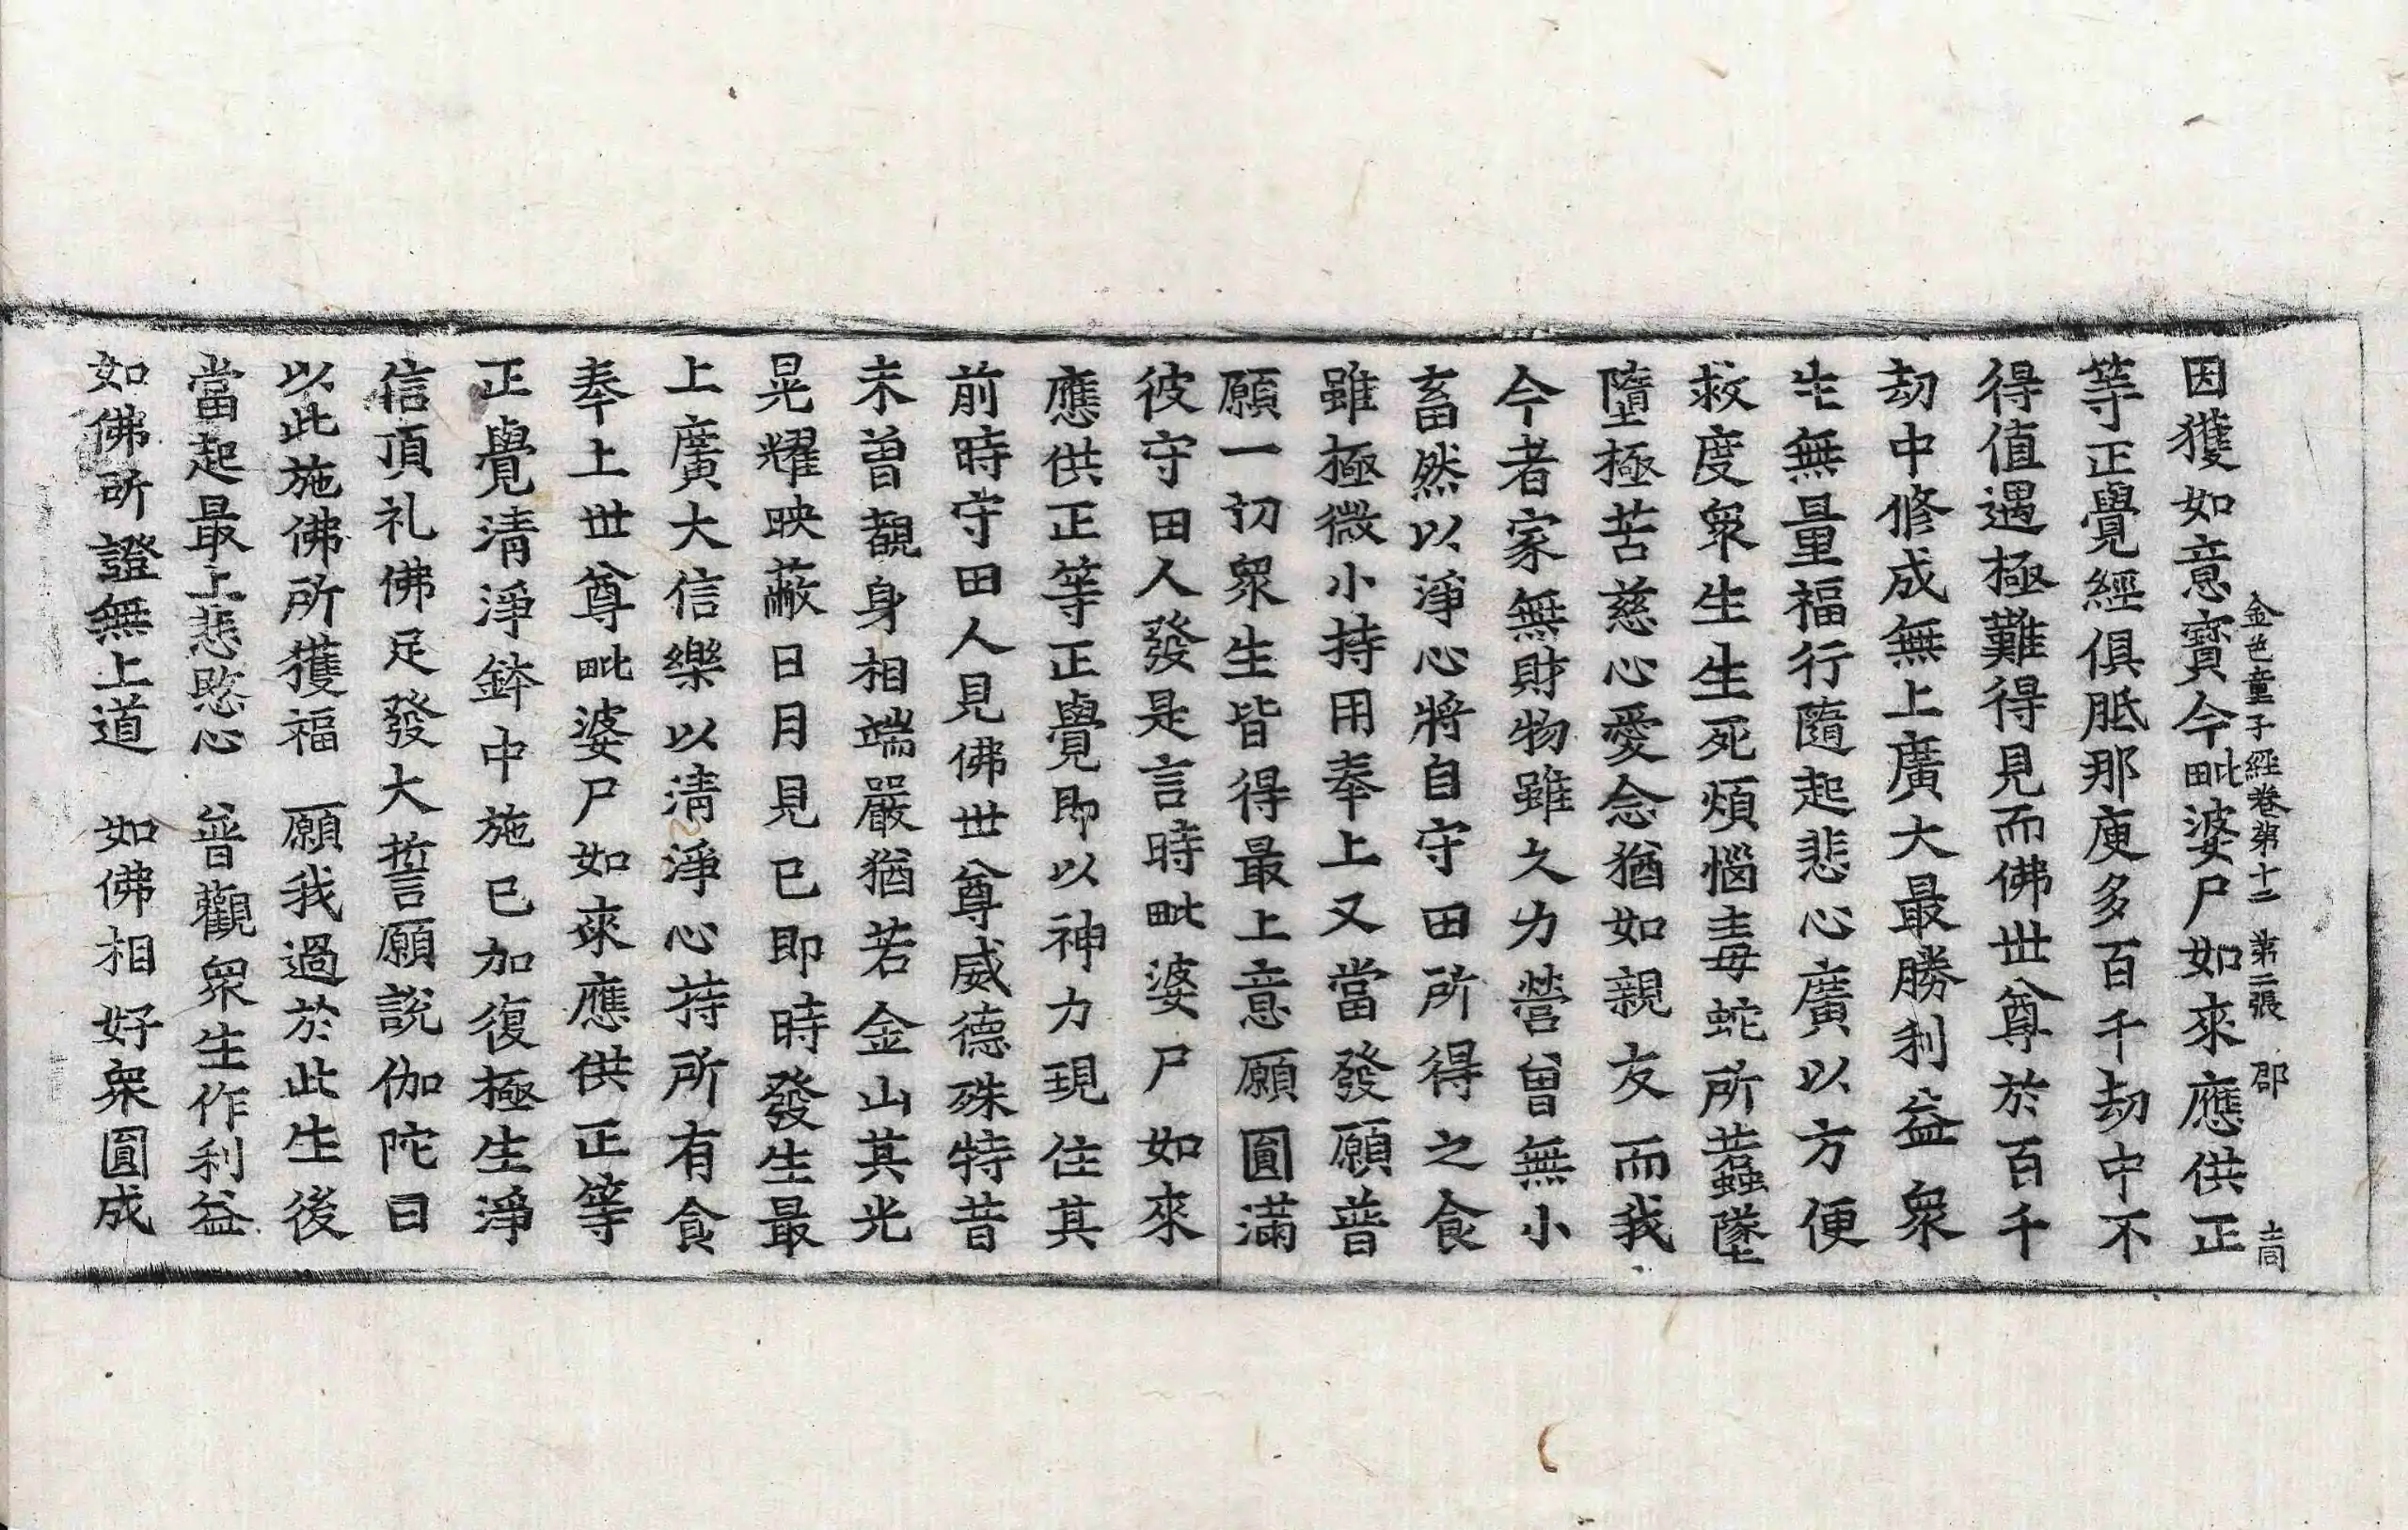 金色童子經卷第十二 第二張 郡
因獲如意寶今毗婆尸如來應供正
等正覺經俱胝那庾多百千劫中不
得值遇極難得見而佛世尊於百千
劫中修成無上廣大最勝利益衆
生無量福行隨起悲心廣以方便
救度衆生生死煩惱毒蛇所䖧墜
墮極苦慈心愛念猶如親友而我
今者家無財物雖久力營曾無小
畜然以淨心將自守田所得之食
雖極微小持用奉上又當發願普
願一切衆生皆得最上意願圓滿
彼守田人發是言時毗婆尸如來
應供正等正覺即以神力現住其
前時守田人見佛世尊威德殊特昔
未曾覩身相端嚴猶若金山其光
晃耀映蔽日月見已即時發生最
上廣大信樂以清淨心持所有食
奉上世尊毗婆尸如來應供正等
正覺清淨鉢中施已加復極生淨
信頂礼佛足發大誓願說伽陀曰
以此施佛所獲福 願我過於此生後
當起最上悲愍心 普觀衆生作利益
如佛所證無上道 如佛相好衆圓成